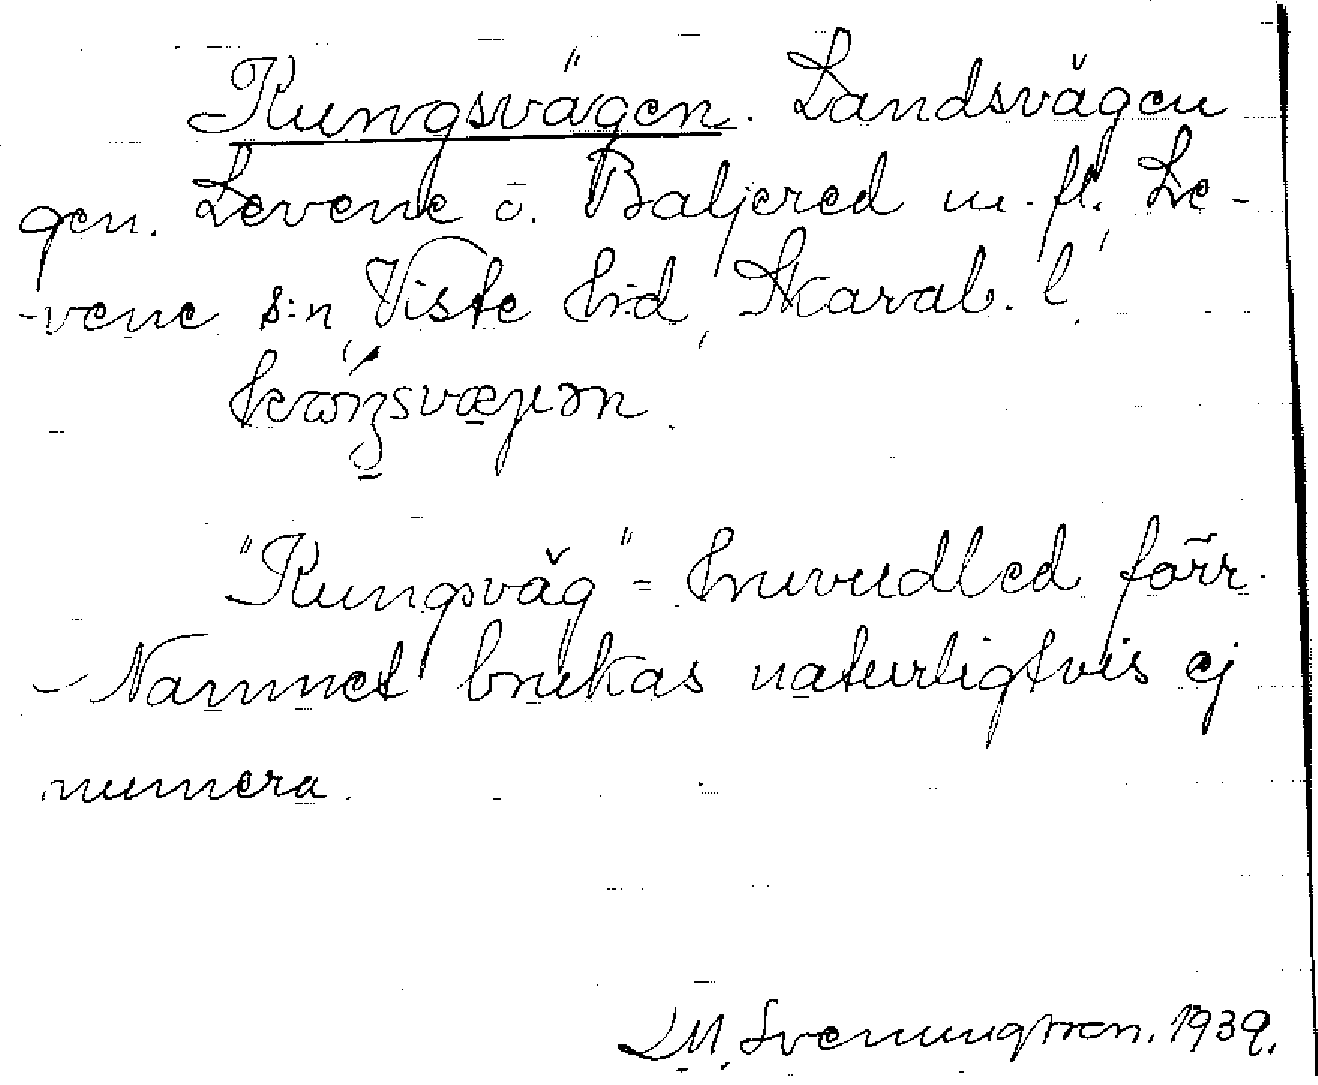 Kungsvägen. Landsvägen
gen. Levene o. Baljered m. fl. Le-
-vene s:n, Viste hd, Skarab. l.
"Kungsväg" = huvudled förr.
- Namnet brukas naturligtvis ej
numera.
LM. Svenungsson. 1939.